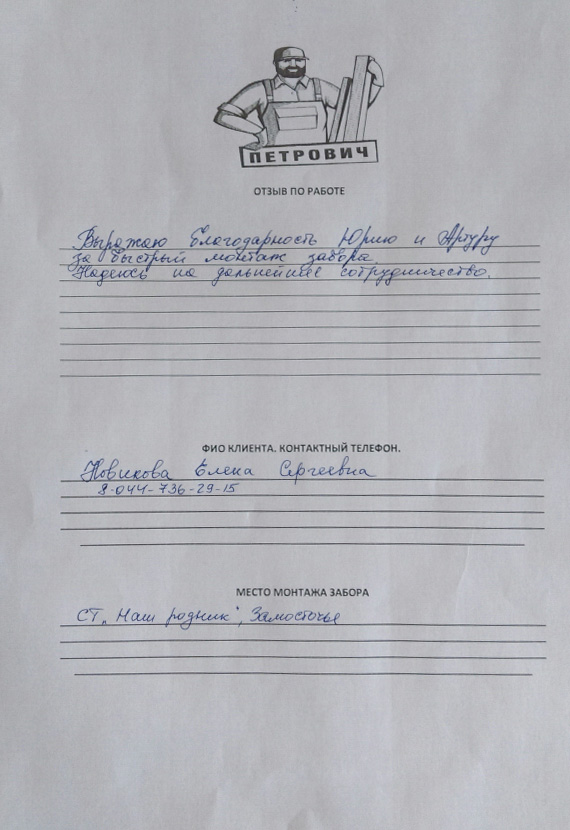 ПЕТРОВИЧ
ОТЗЫВ ПО РАБОТЕ
Выражаю благодарность Юрию и Артуру
за быстрый монтаж забора.
Надеюсь на дальнейшее сотрудничество.
ФИО КЛИЕНТА. КОНТАКТНЫЙ ТЕЛЕФОН.
Новикова Елена Сергеевна
8-044-736-29-15
МЕСТО МОНТАЖА ЗАБОРА
СТ „Наш родник", Замосточье